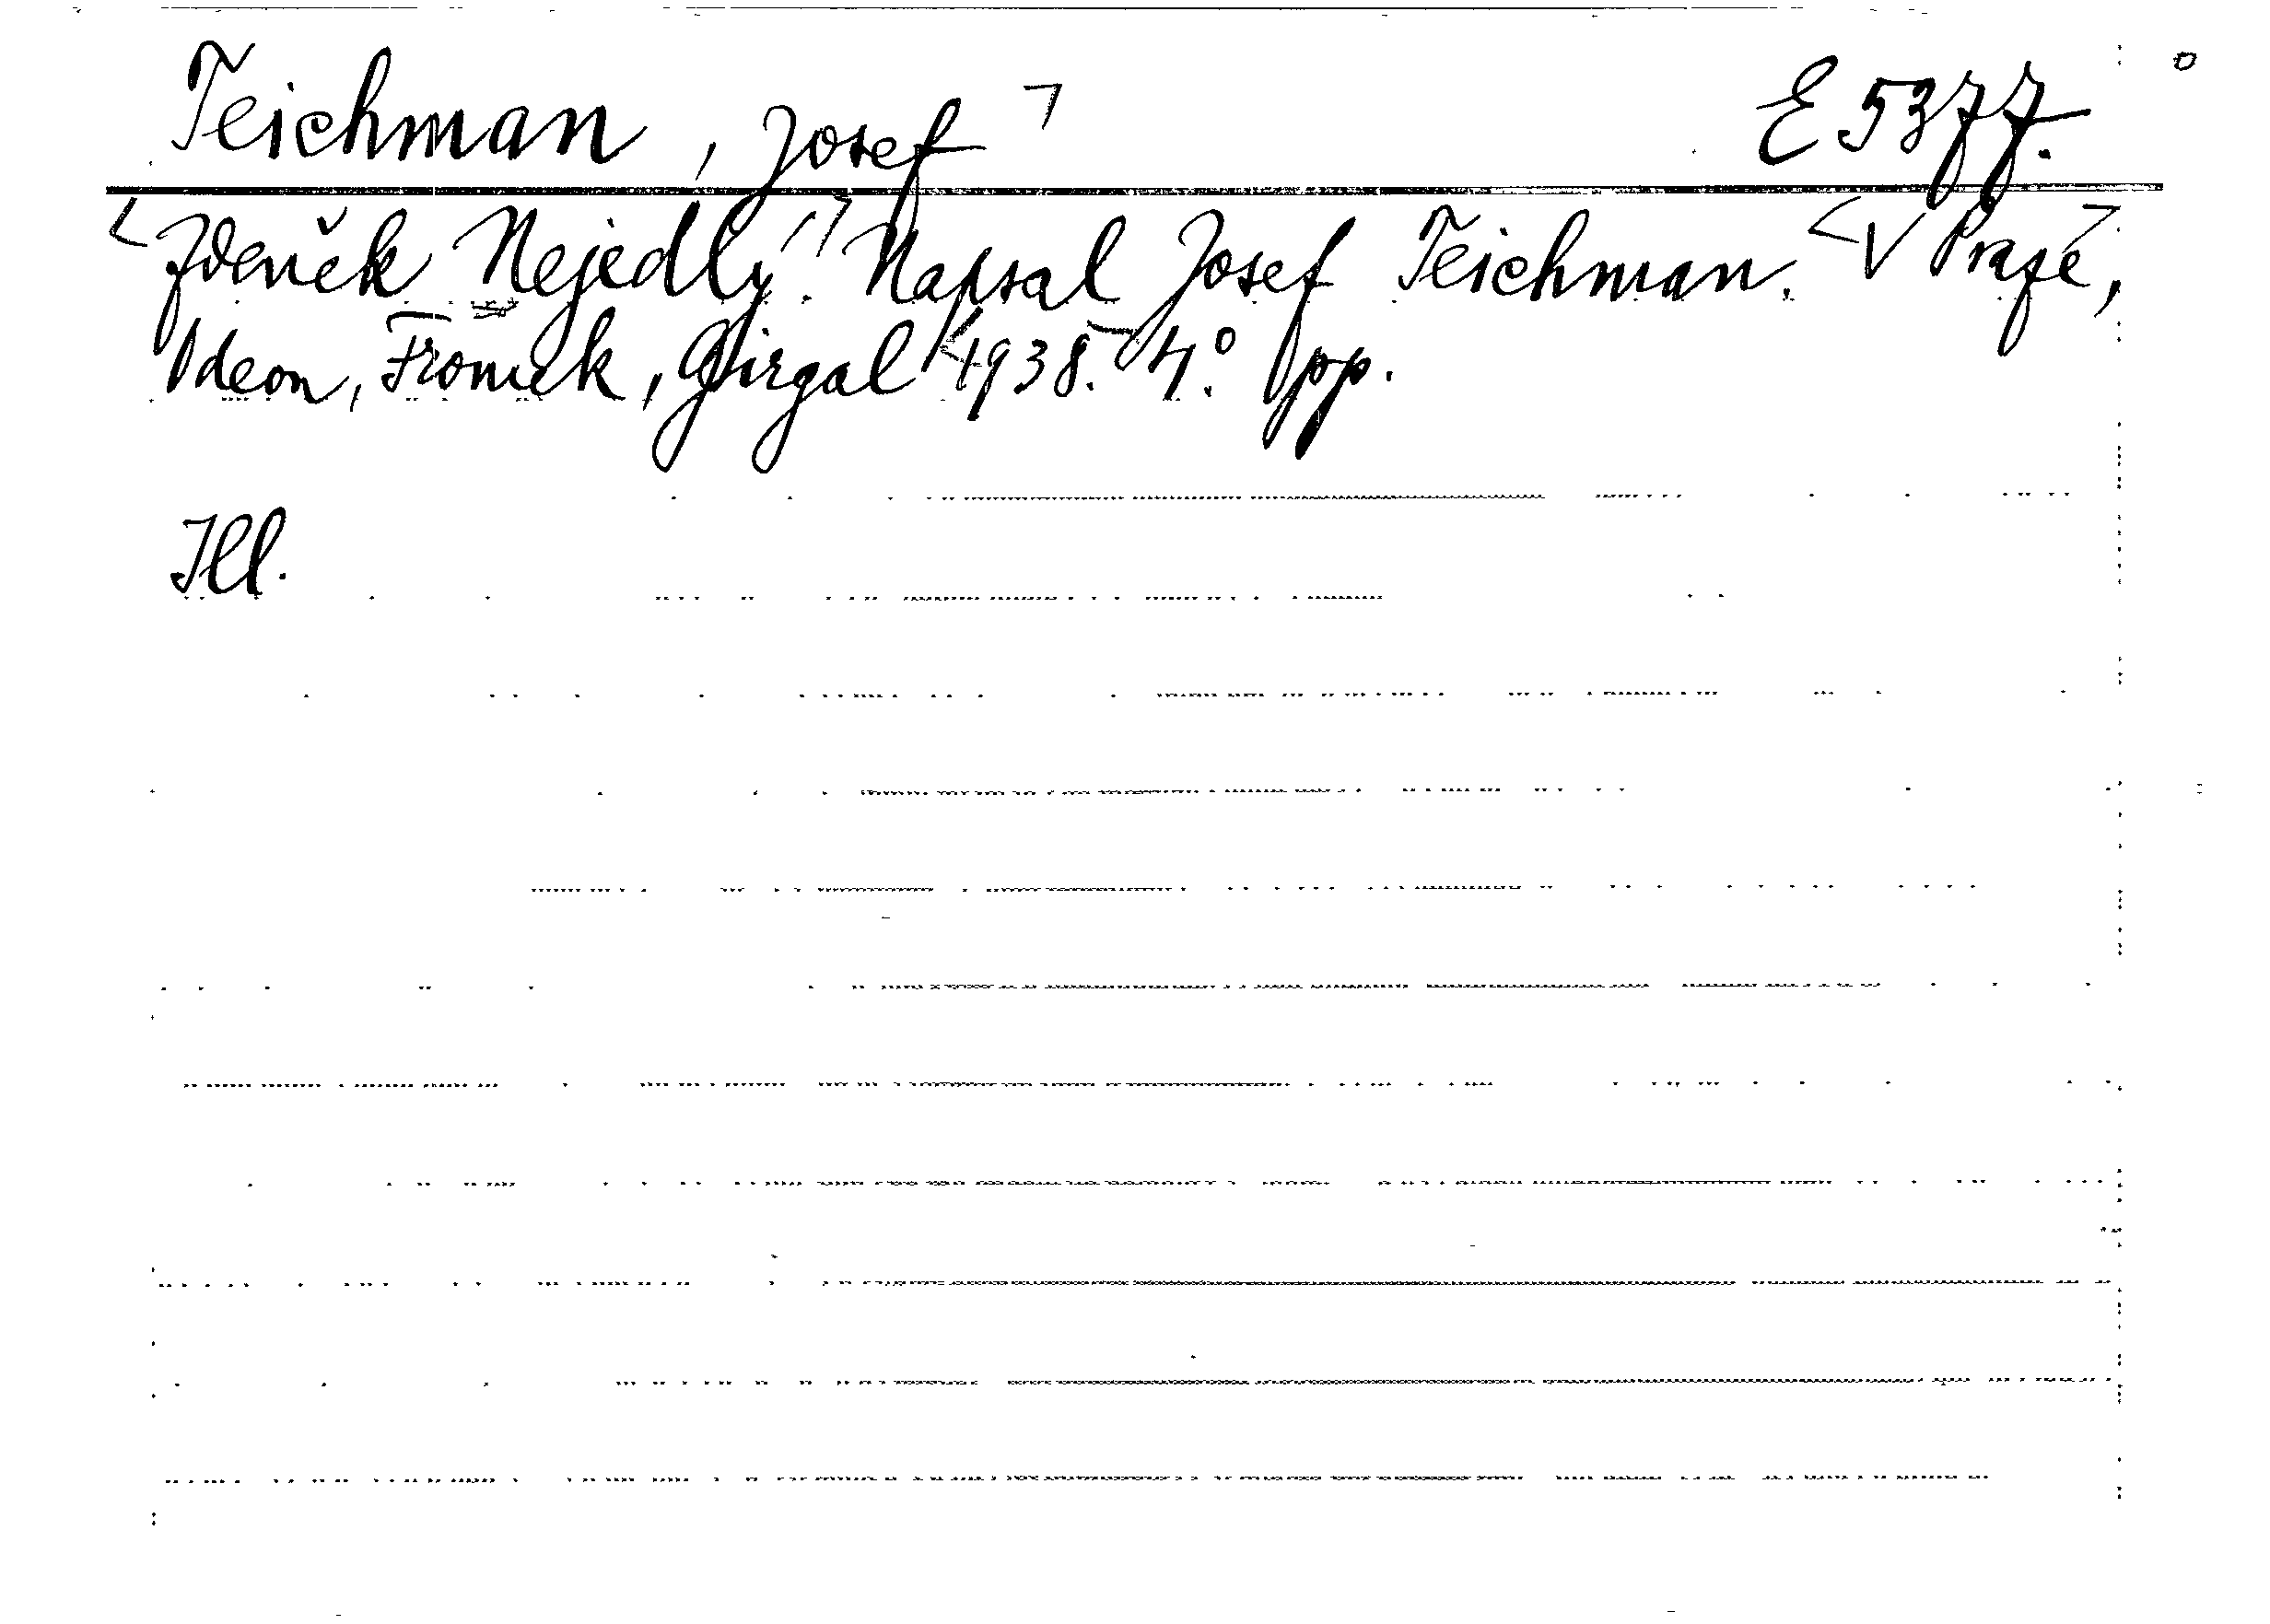 Teichman, Josef E 5377.
Zdeněk Nejedlý. Napsal Josef Teichman. V Praze,
Odeon, Fromek, Girgal 1938. 4.° pp.
Ill.